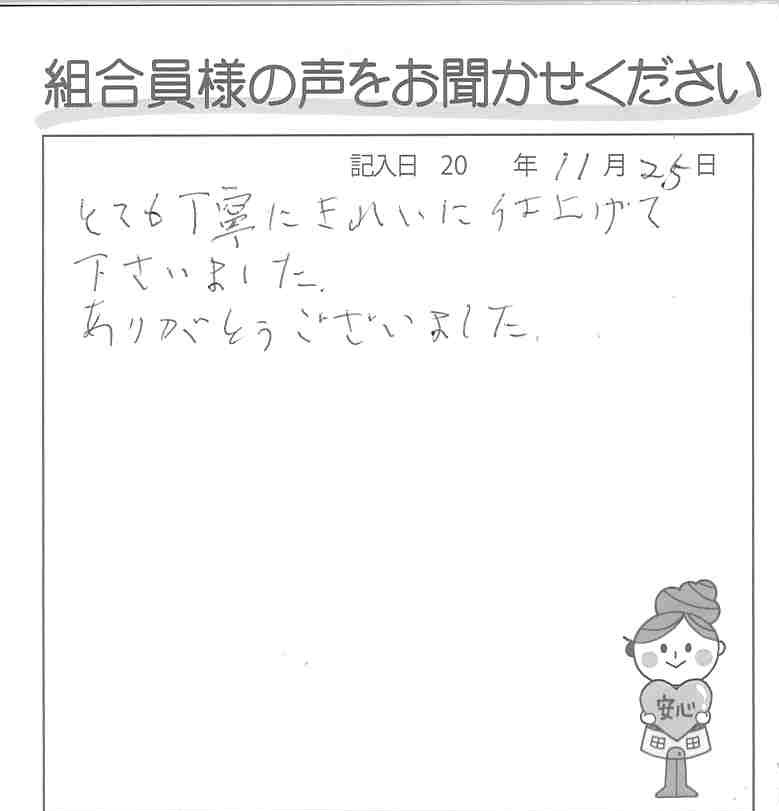 組合員様の声をお聞かせください
記入日 20 年 11月25日
とても丁寧にきれいに仕上げて
下さいました.
ありがとうございました.
安心